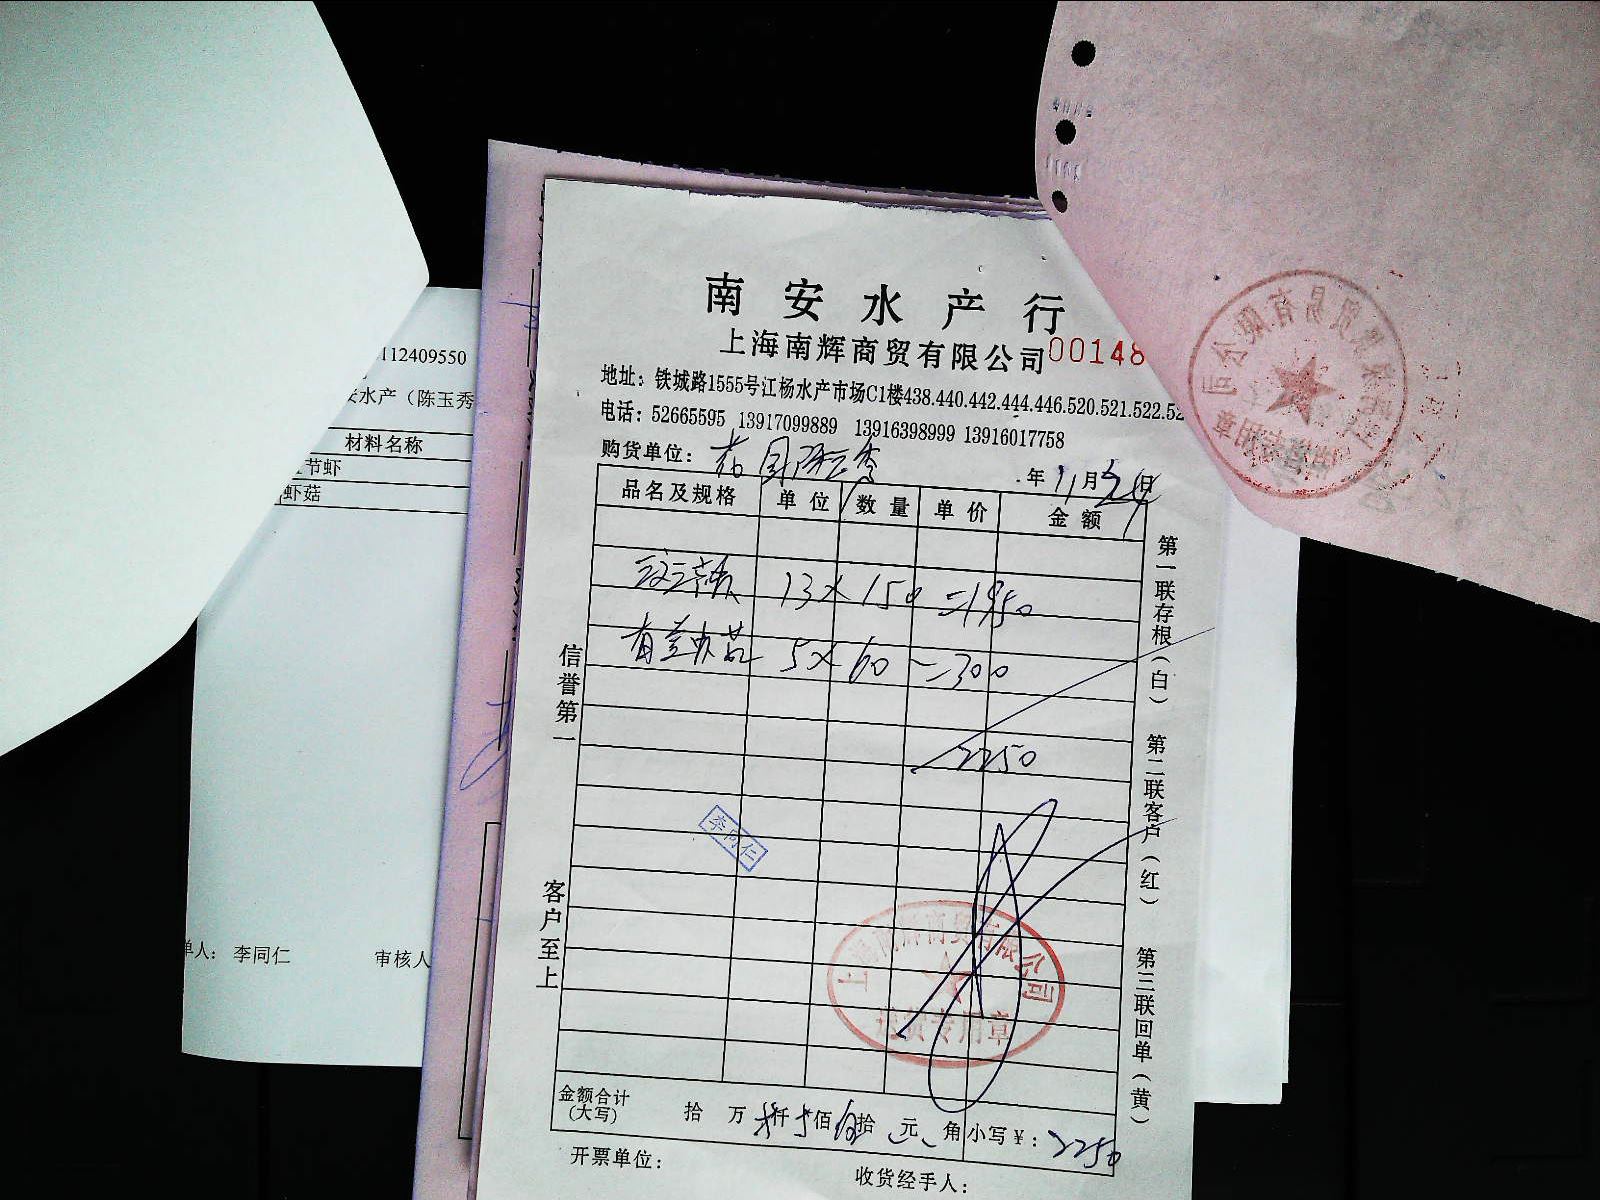 南安水产行
上海南辉商贸有限公司 00148
地址：铁城路1555号江杨水产市场C1楼438.440.442.444.446.520.521.522.52
电话：52665595 13917099889 13916398999 13916017758
购货单位：
年 11月24日
品名及规格 单位 数量 单价 金额
13×150=1950
5×60=300
2250
李同仁
上海南辉商贸有限公司
送货专用章
金额合计
(大写) 拾 万 仟 佰 拾 元 角 小写¥：2250
开票单位：
收货经手人：
信誉第一
客户至上
第一联存根(白)
第二联客户(红)
第三联回单(黄)
112409550
水产（陈玉秀
材料名称
节虾
虾菇
单人：李同仁 审核人